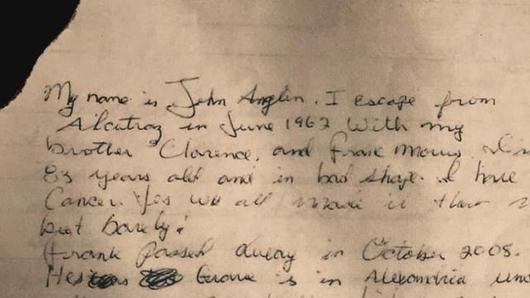 My name is John Anglin. I escape from
Alcatraz in June 1962 With my
brother Clarence, and Frank Morris. I'm
83 years old and in bad shape. I have
Cancer. Yes we all made it that
but barely!
Frank passed away in October 2008.
His Grave is in Alexandria